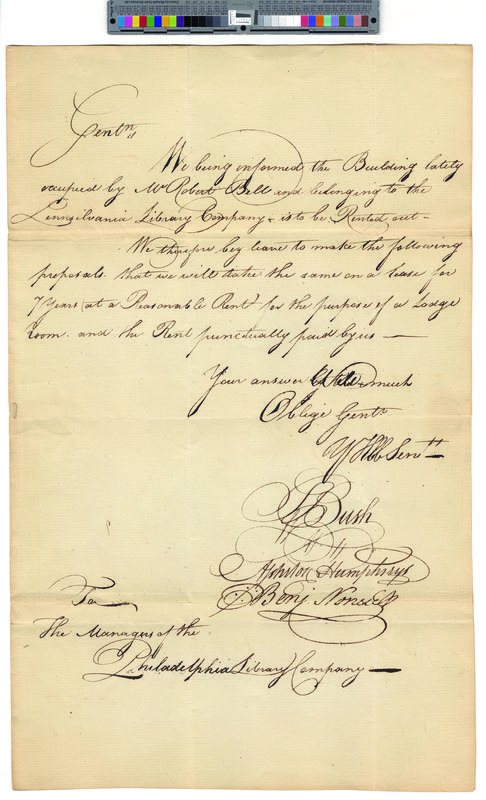 Gentn
We being informed the Building lately
occupied by Mr Robert Bell and belonging to the
Pennsilvania Library Company is to be Rented out -
We therefore beg leave to make the following
proposals that we will take the same on a lease for
7 Years at a Reasonable Rent for the purpose of a Lodge
Room. and the Rent punctually paid by us —
Your answer will much
Oblige Gentn
Y Hble Servts
S Bush
Ashton Humphrys
Benj Nones
To
The Managers of the
Philadelphia Library Company —